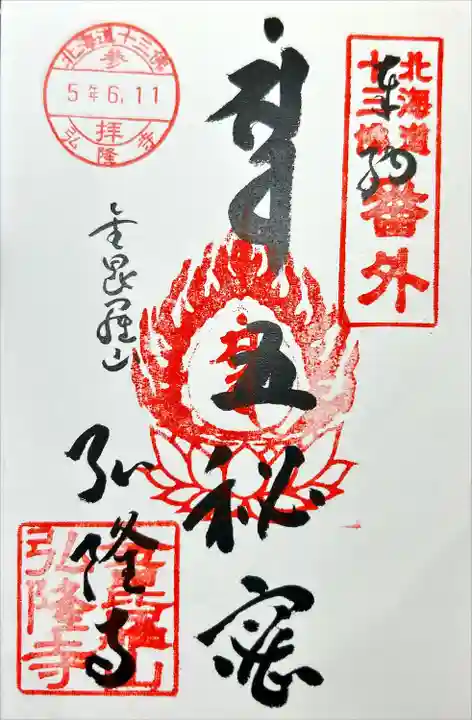 北海道
十三佛
番外
奉拝
五秘密
北海道十三佛
参
5年6.11
拝
弘隆寺
金毘羅山
弘隆寺
金毘羅山
弘隆寺